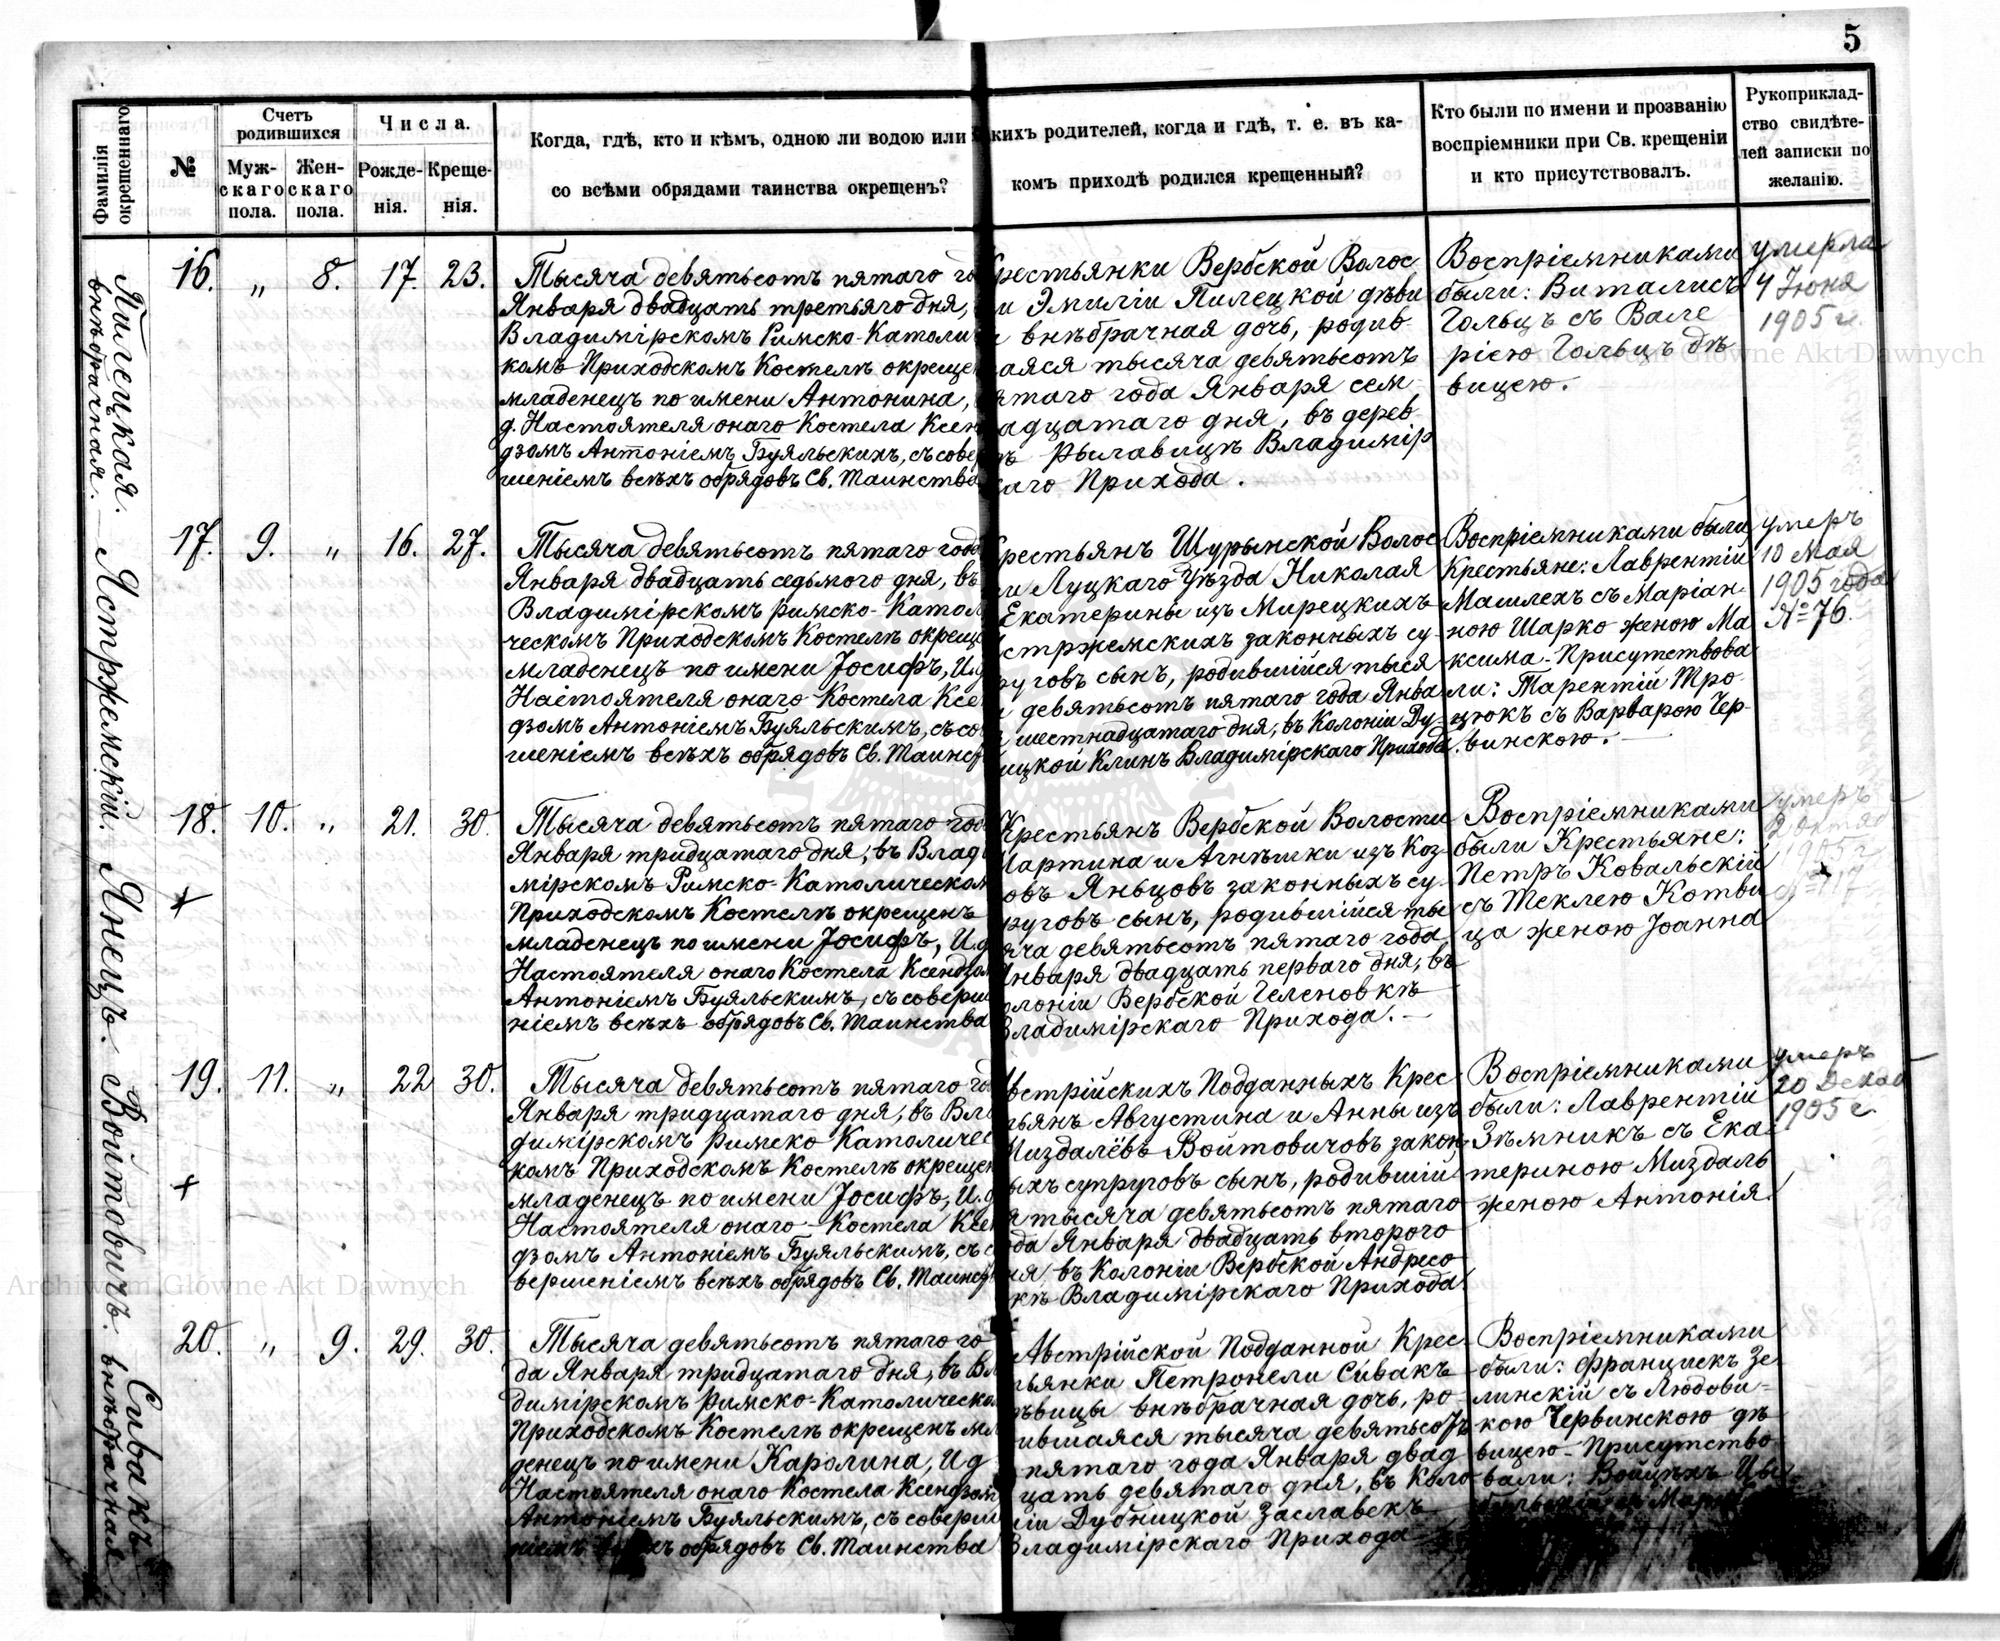 5
Фамилія
окрещеннаго
№
Счетъ
родившихся
Муж-
скаго
пола.
Жен-
скаго
пола.
Числа.
Рожде-
нія.
Креще-
нія.
Когда, гдѣ, кто и кѣмъ, одною ли водою или
со всѣми обрядами таинства окрещенъ?
кихъ родителей, когда и гдѣ, т. е. въ ка-
комъ приходѣ родился крещенный?
Кто были по имени и прозванію
воспріемники при Св. крещеніи
и кто присутствовалъ.
Рукоприклад-
ство свидѣте-
лей записки по
желанію.
Пилецкая.
внѣбрачная.
16. „ 8. 17. 23.
Тысяча девятьсотъ пятаго го
Января двадцать третьяго дня,
Владимірскомъ Римско-Католи
комъ Приходскомъ Костелѣ окрещен
младенецъ по имени Антонина,
д. Настоятеля онаго Костела Ксен
дзомъ Антоніемъ Буяльскихъ, съ совер
шеніемъ всѣхъ обрядовъ Св. Таинства
рестьянки Вербской Волос
и Эмиліи Пилецкой дѣви
внѣбрачная дочь, родив
аяся тысяча девятьсотъ
ятаго года Января сем
адцатаго дня, въ дерев
Рылавицѣ Владимір
каго Прихода.
Воспріемниками
были: Виталисъ
Гольцъ съ Вале
ріею Гольцъ дѣ
вицею.
умерла
4 Іюня
1905 г.
Ястржемскій.
17. 9. „ 16. 27.
Тысяча девятьсотъ пятаго года
Января двадцать седьмого дня, въ
Владимірскомъ Римско-Катол
ческомъ Приходскомъ Костелѣ окреще
младенецъ по имени Іосифъ, И.д
Настоятеля онаго Костела Ксе
дзомъ Антоніемъ Буяльскимъ, съ со
шеніемъ всѣхъ обрядовъ Св. Таинст
рестьянъ Щурынской Волос
и Луцкаго Уѣзда Николая
Екатерины изъ Мирецкихъ
стржемскихъ законныхъ су-
руговъ сынъ, родившійся тыся
девятьсотъ пятаго года Янва
шестнадцатаго дня, въ Колоніи Ду-
ицкой Клинъ Владимірскаго Прихода.
Воспріемниками были
Крестьяне: Лаврентій
Машлехъ съ Маріан-
ною Шарко женою Ма
ксима-Присутствова
ли: Тарентій Тро-
цюкъ съ Варварою Чер-
винскою.
умеръ
10 Мая
1905 года
№ 76.
Янецъ.
18. 10. „ 21. 30.
Тысяча девятьсотъ пятаго год
Января тридцатаго дня, въ Влад
мірскомъ Римско-Католическом
Приходскомъ Костелѣ окрещенъ
младенецъ по имени Іосифъ, И.д
Настоятеля онаго Костела Ксендзом
Антоніемъ Буяльскимъ, съ соверш
ніемъ всѣхъ обрядовъ Св. Таинства
Крестьянъ Вербской Волости
Мартина и Агнѣшки изъ Коз-
овъ Яньцовъ законныхъ су-
руговъ сынъ, родившійся ты
яча девятьсотъ пятаго года,
Января двадцать перваго дня, въ
олоніи Вербской Геленовкѣ
Владимірскаго Прихода.
Воспріемниками
были Крестьяне:
Петръ Ковальскій
съ Теклею Котви
ца женою Іоанна
умеръ
2 Октяб
1905 г.
№ 117
Войтовичъ.
19. 11. „ 22 30.
Тысяча девятьсотъ пятаго го
Января тридцатаго дня, въ Вла
димірскомъ Римско Католичес
комъ Приходскомъ Костелѣ окрещен
младенецъ по имени Іосифъ, И.д
Настоятеля онаго Костела Ксен
дзомъ Антоніемъ Буяльскимъ, съ с
вершеніемъ всѣхъ обрядовъ Св. Таинст
встрійскихъ Подданныхъ Крес-
ьянъ Августина и Анны изъ
Миздалёвъ Войтовичовъ закон,
ыхъ супруговъ сынъ, родившій-
я тысяча девятьсотъ пятаго
ода Января двадцать второго
ня въ Колоніи Вербской Андресо
кѣ Владимірскаго Прихода.
Воспріемниками
были: Лаврентій
Зѣмникъ съ Ека-
териною Миздаль
женою Антонія.
умеръ
20 Декаб
1905 г.
Сивакъ
внѣбрачная
20. „ 9. 29. 30.
Тысяча девятьсотъ пятаго го
да Января тридцатаго дня, въ Вл
димірскомъ Римско-Католическо
Приходскомъ Костелѣ окрещенъ мл
денецъ по имени Каролина, И д
Настоятеля онаго Костела Ксендзом
Антоніемъ Буяльскимъ, съ соверш
ніемъ всѣхъ обрядовъ Св. Таинства
Австрійской Подданной Крес-
ьянки Петронели Сивакъ
ѣвицы внѣбрачная дочь, ро
ившаяся тысяча девятьсотъ
пятаго года Января двад
цать девятаго дня, въ Коло
іи Дубницкой Заславекъ
Владимірскаго Прихода
Воспріемниками
были: Францискъ Зе-
линскій съ Людови-
кою Червинскою дѣ
вицею-Присутство
вали: Войцѣхъ
Archiwum Główne Akt Dawnych
Główne Akt Dawnych